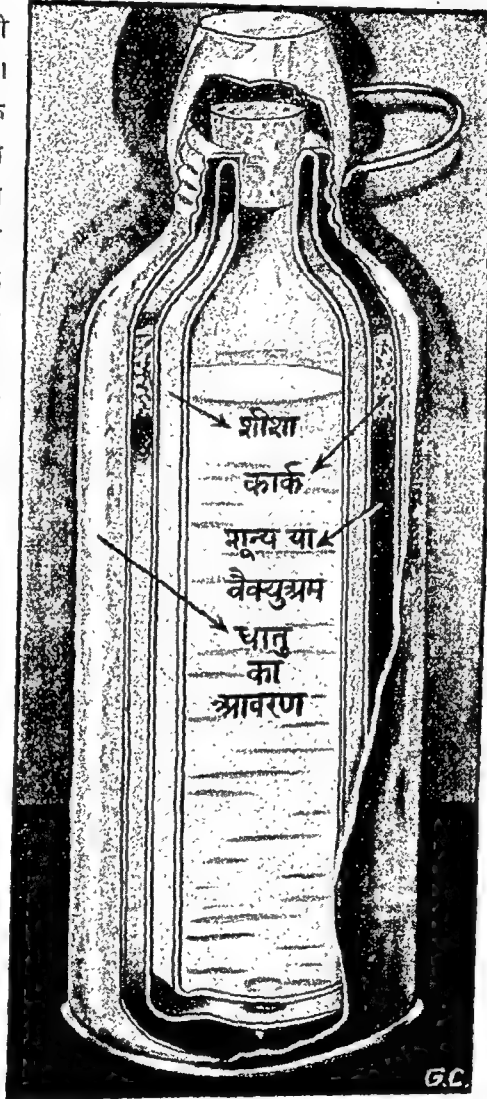 शीशा
कार्क
शून्य या
वैक्युअम
धातु
का
आवरण
G.C.